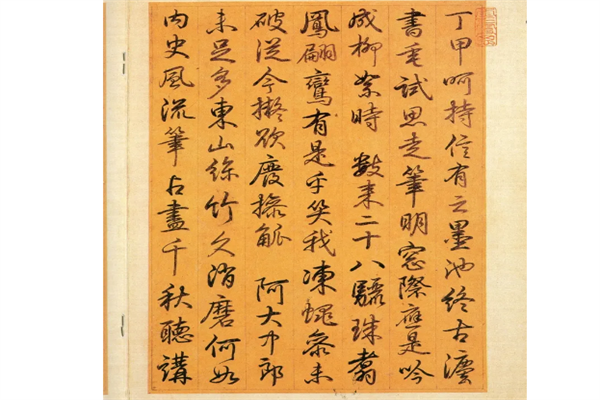 丁甲呵持信有之墨池終古
書試思走筆明窗際應是吟
成柳絮時 數來二十八驪珠翥
鳳翩鸞有是乎笑我凍蠅參未
破從今擬欲廢操觚 阿大中郎
未足多東山絲竹久消磨何如
內史風流筆占盡千秋聽講